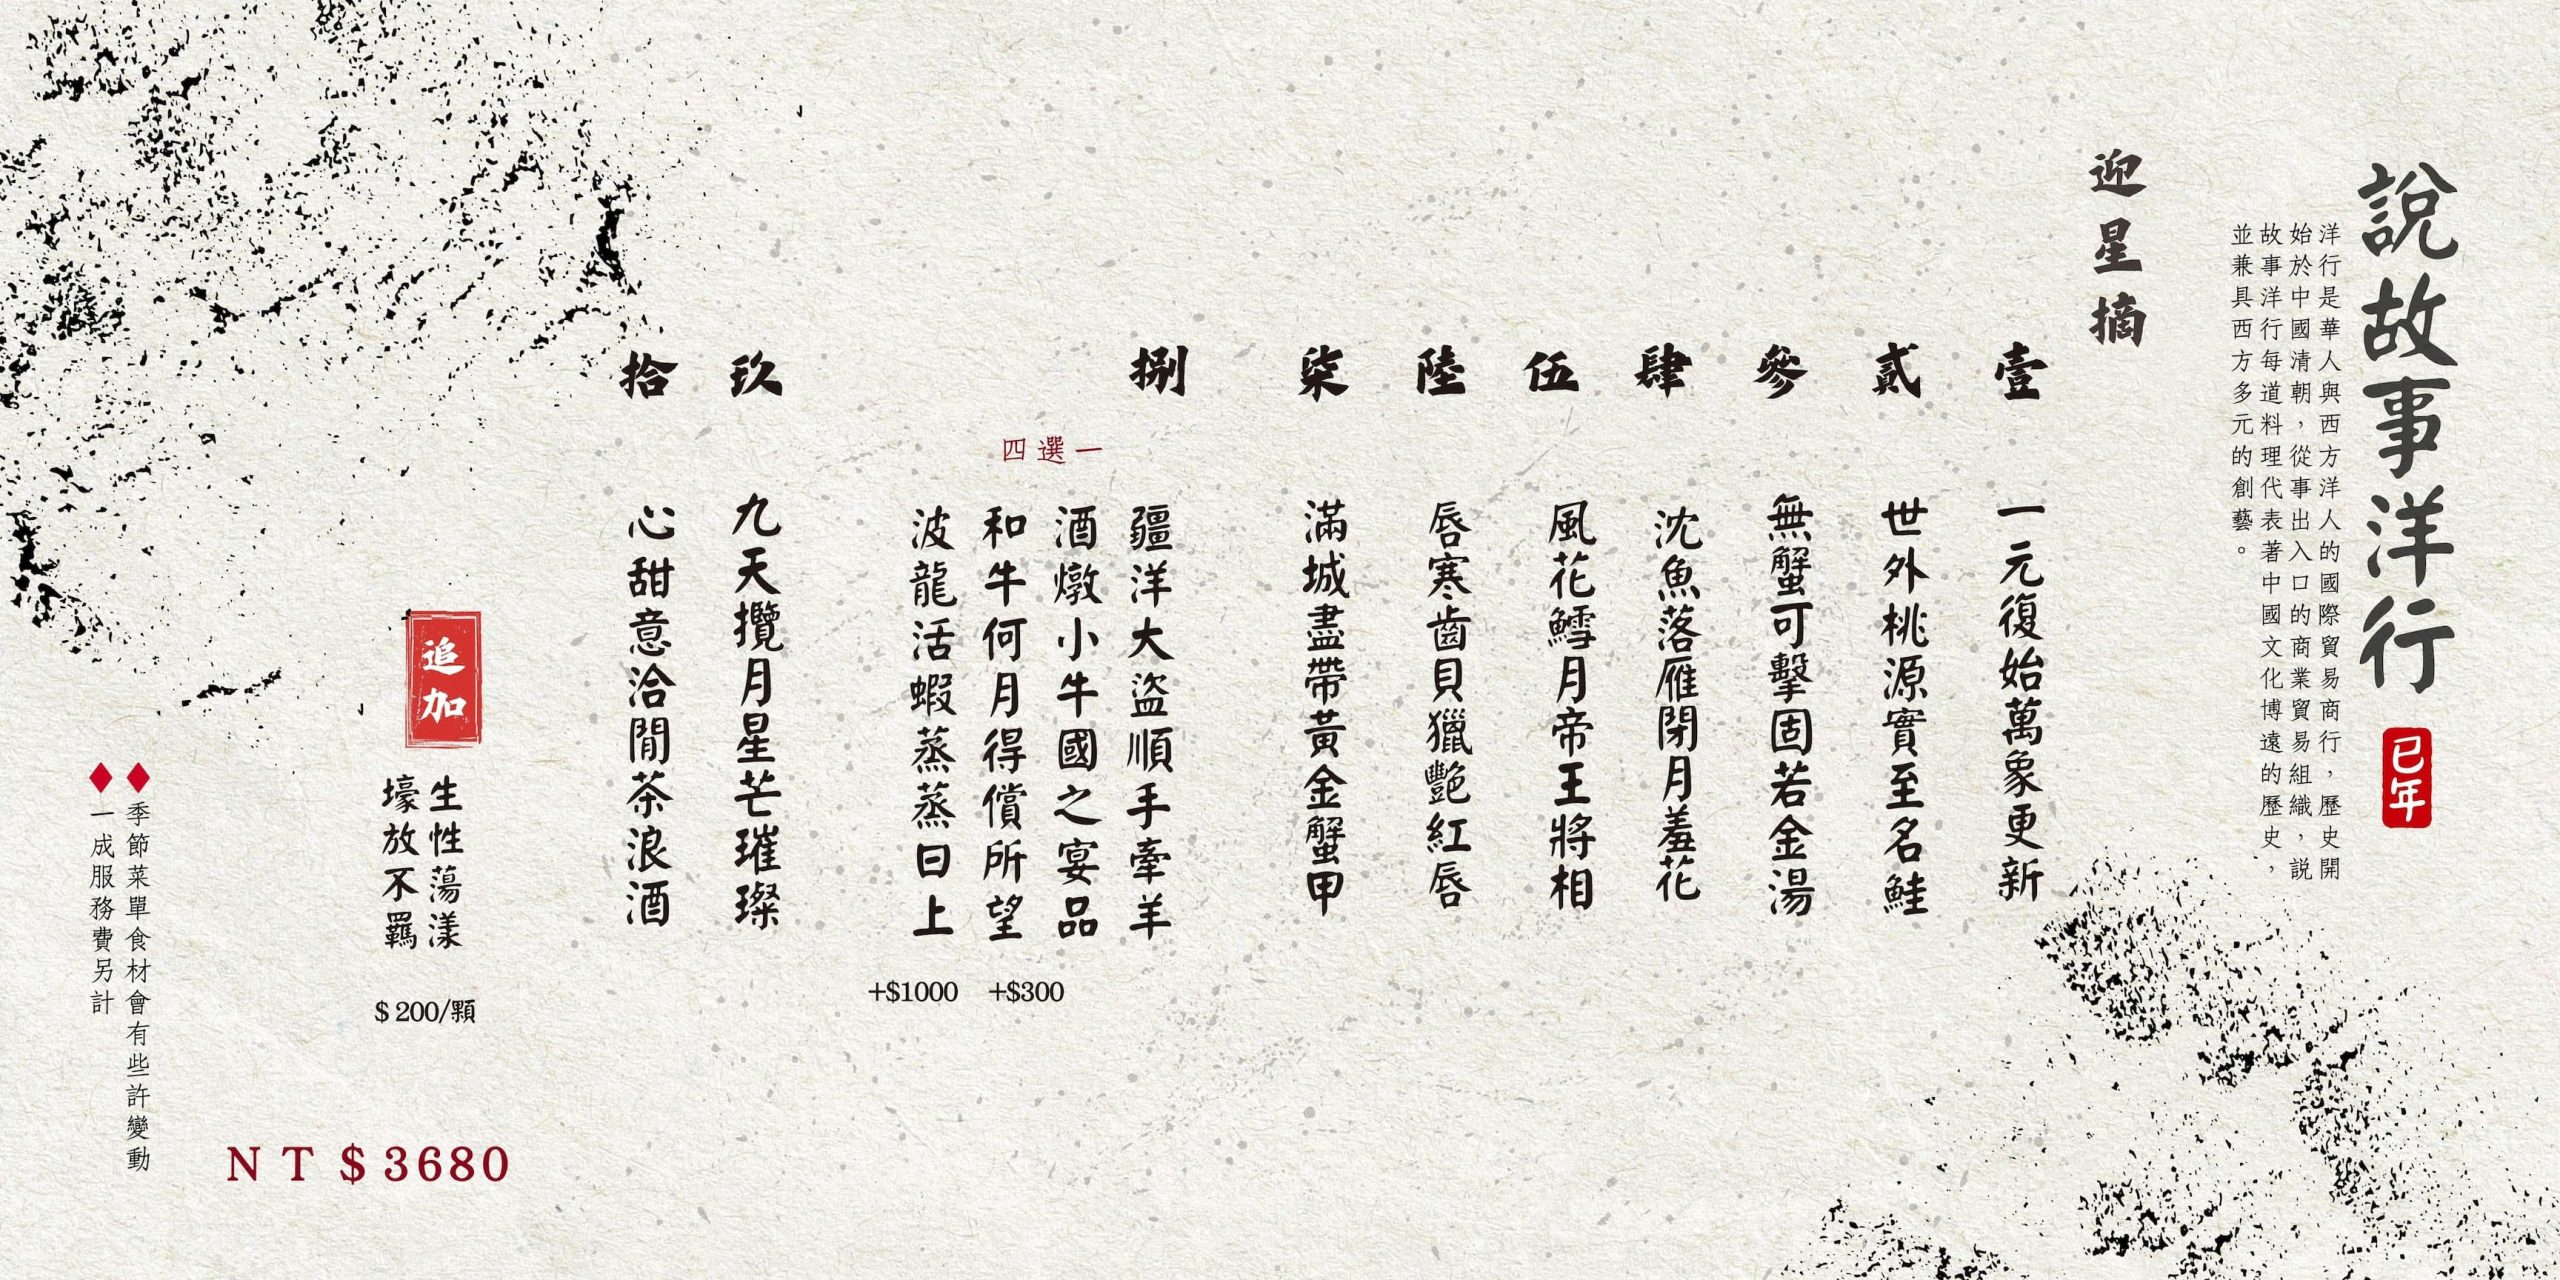 說故事洋行
巳年
洋行是華人與西方洋人的國際貿易商行，歷史開
始於中國清朝，從事出入口的商業貿易組織，説
故事洋行每道料理代表著中國文化博遠的歷史，
並兼具西方多元的創藝。
迎星摘
壹
一元復始萬象更新
貳
世外桃源實至名鮭
參
無蟹可擊固若金湯
肆
沈魚落雁閉月羞花
伍
風花鱈月帝王將相
陸
唇寒齒貝獵艷紅唇
柒
滿城盡帶黃金蟹甲
捌
四選一
疆洋大盜順手牽羊
酒燉小牛國之宴品
和牛何月得償所望
+$300
波龍活蝦蒸蒸日上
+$1000
玖
九天攬月星芒璀璨
拾
心甜意洽閒茶浪酒
追加
生性蕩漾
壕放不羈
$ 200/顆
NT$3680
♦季節菜單食材會有些許變動
♦一成服務費另計